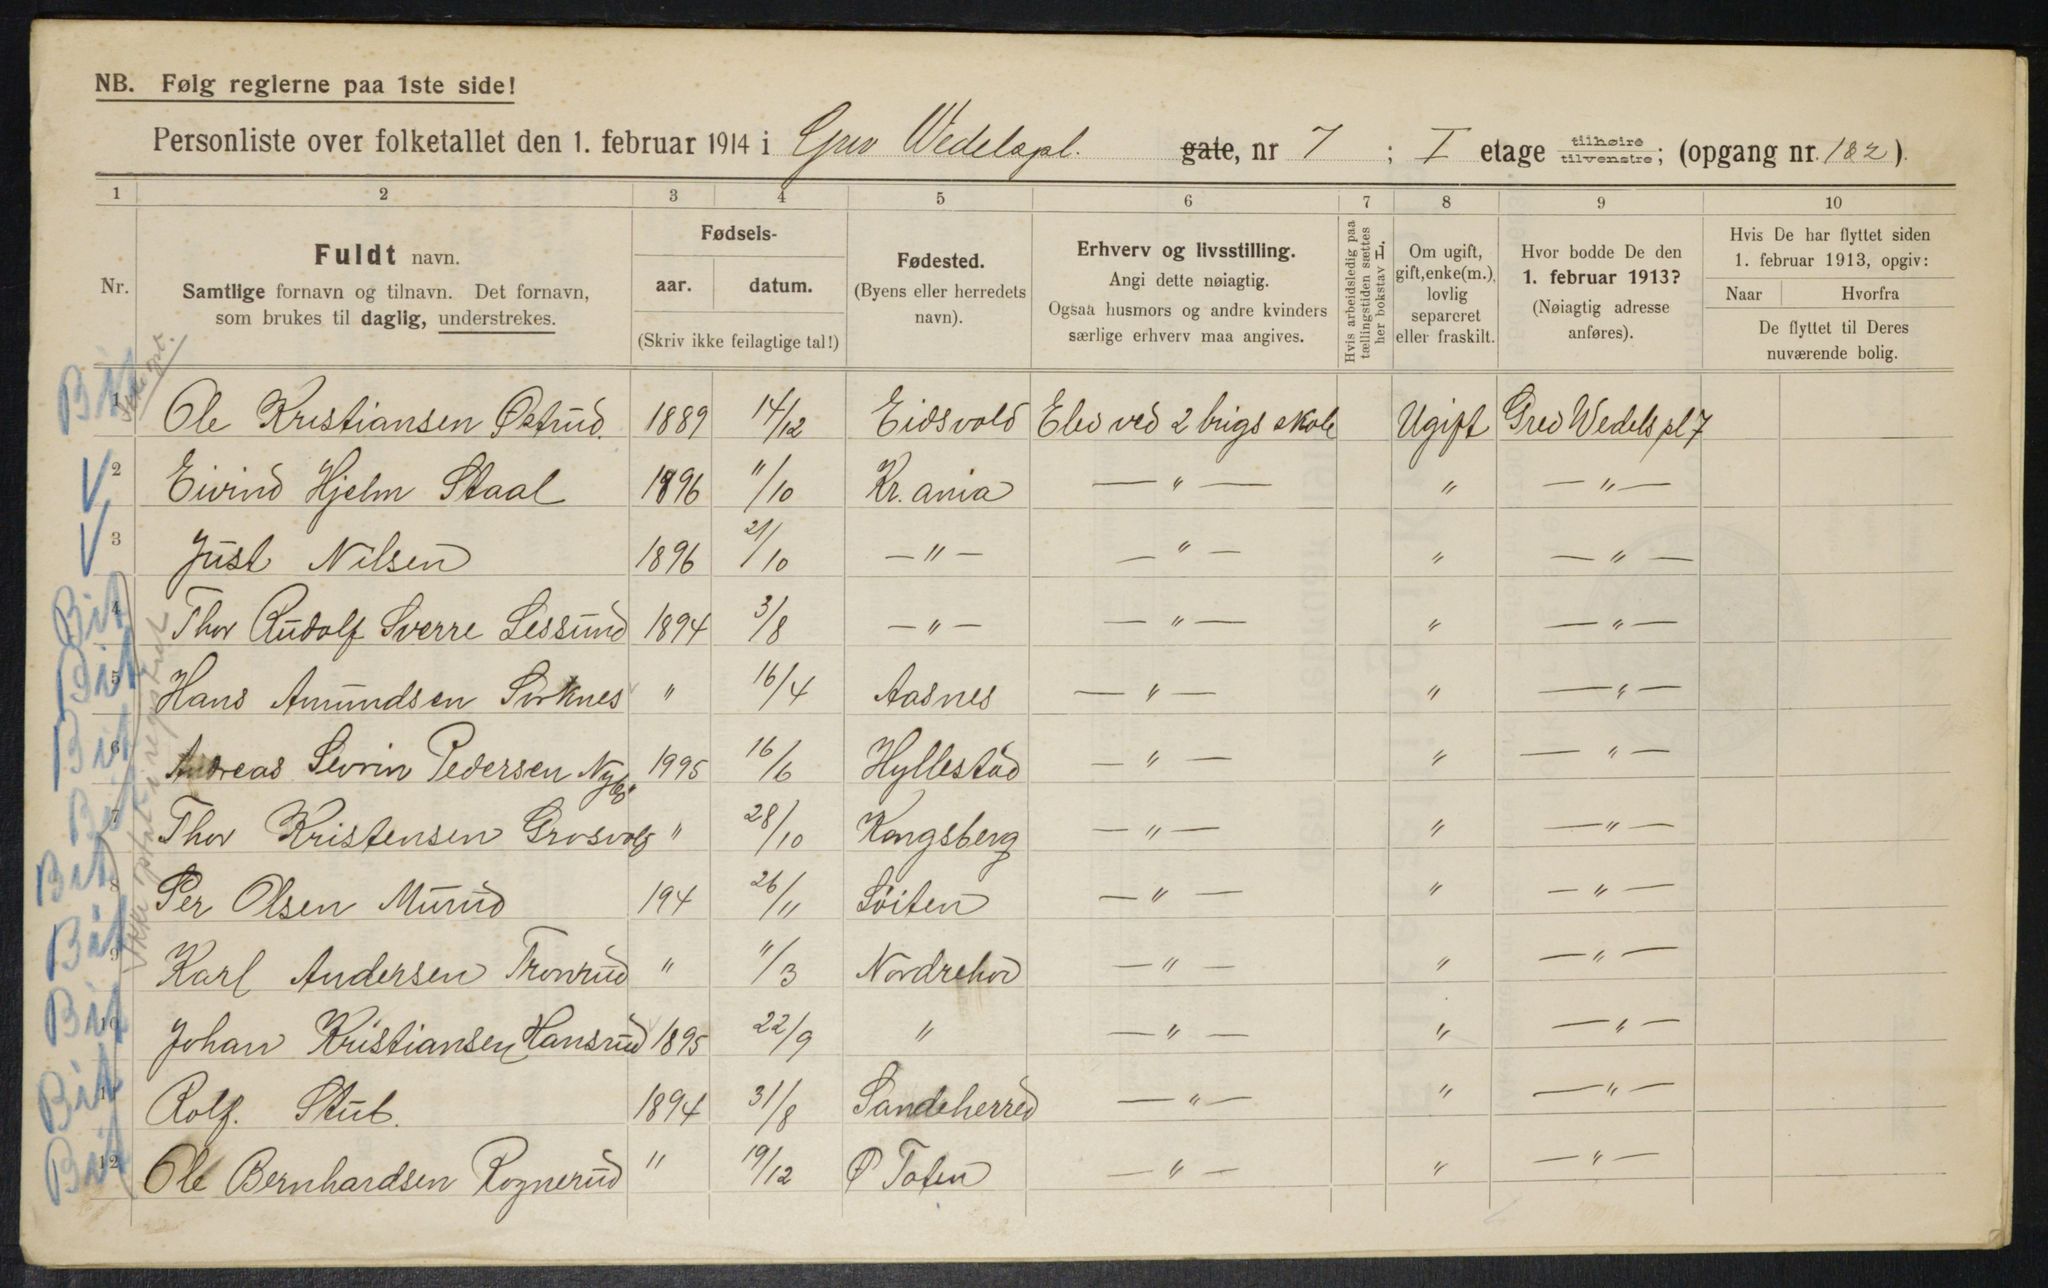 NB. Følg reglerne paa 1ste side!
Personliste over folketallet den 1. februar 1914 i Grev Wedelspl. gate, nr 7 ; I etage tilhøire tilvenstre; (opgang nr. 1&2).
1 2 3 4 5 6 7 8 9 10
Nr.
Fuldt navn.
Samtlige fornavn og tilnavn. Det fornavn,
som brukes til daglig, understrekes.
Fødsels-
aar. datum.
(Skriv ikke feilagtige tal!)
Fødested.
(Byens eller herredets
navn).
Erhverv og livsstilling.
Angi dette nøiagtig.
Ogsaa husmors og andre kvinders
særlige erhverv maa angives.
Hvis arbeidsledig paa
tællingstiden sættes
her bokstav L.
Om ugift,
gift, enke(m.),
lovlig
separeret
eller fraskilt.
Hvor bodde De den
1. februar 1913?
(Nøiagtig adresse
anføres).
Hvis De har flyttet siden
1. februar 1913, opgiv:
Naar Hvorfra
De flyttet til Deres
nuværende bolig.
Bit 1 Ole Kristiansen Østrud. 1889 14/12 Eidsvold Elev ved 2 brigs skole Ugift Grev Wedels pl 7
V 2 Eivind Hjelm Staal 1896 11/10 Kr.ania — " — " — " —
V 3 Just Nilsen 1896 21/10 — " — — " — " — " —
Bit 4 Thor Rudolf Sverre Lessund 1894 3/8 — " — — " — " — " —
Bit 5 Hans Amundsen Sirknes " 16/4 Aasnes — " — " — " —
Bit 6 Andreas Sevrin Pedersen Nybø 1995 16/6 Hyllestad — " — " — " —
Bit 7 Thor Kristensen Grosvold " 28/10 Kongsberg — " — " — " —
Bit 8 Per Olsen Murud 194 26/11 Løiten — " — " — " —
Bit 9 Karl Andersen Tronrud " 11/3 Nordrehov — " — " — " —
Bit 10 Johan Kristiansen Hansrud 1895 22/9 " — " — " — " —
Bit 11 Rolf. Stub. 1894 31/8 Sandeherred — " — " — " —
Bit 12 Ole Bernhardsen Rognerud " 19/12 Ø Toten — " — " — " —
Ikke optat i registret